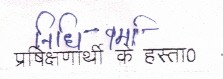 निधि शर्मा
प्रषिक्षणार्थी के हस्ता०